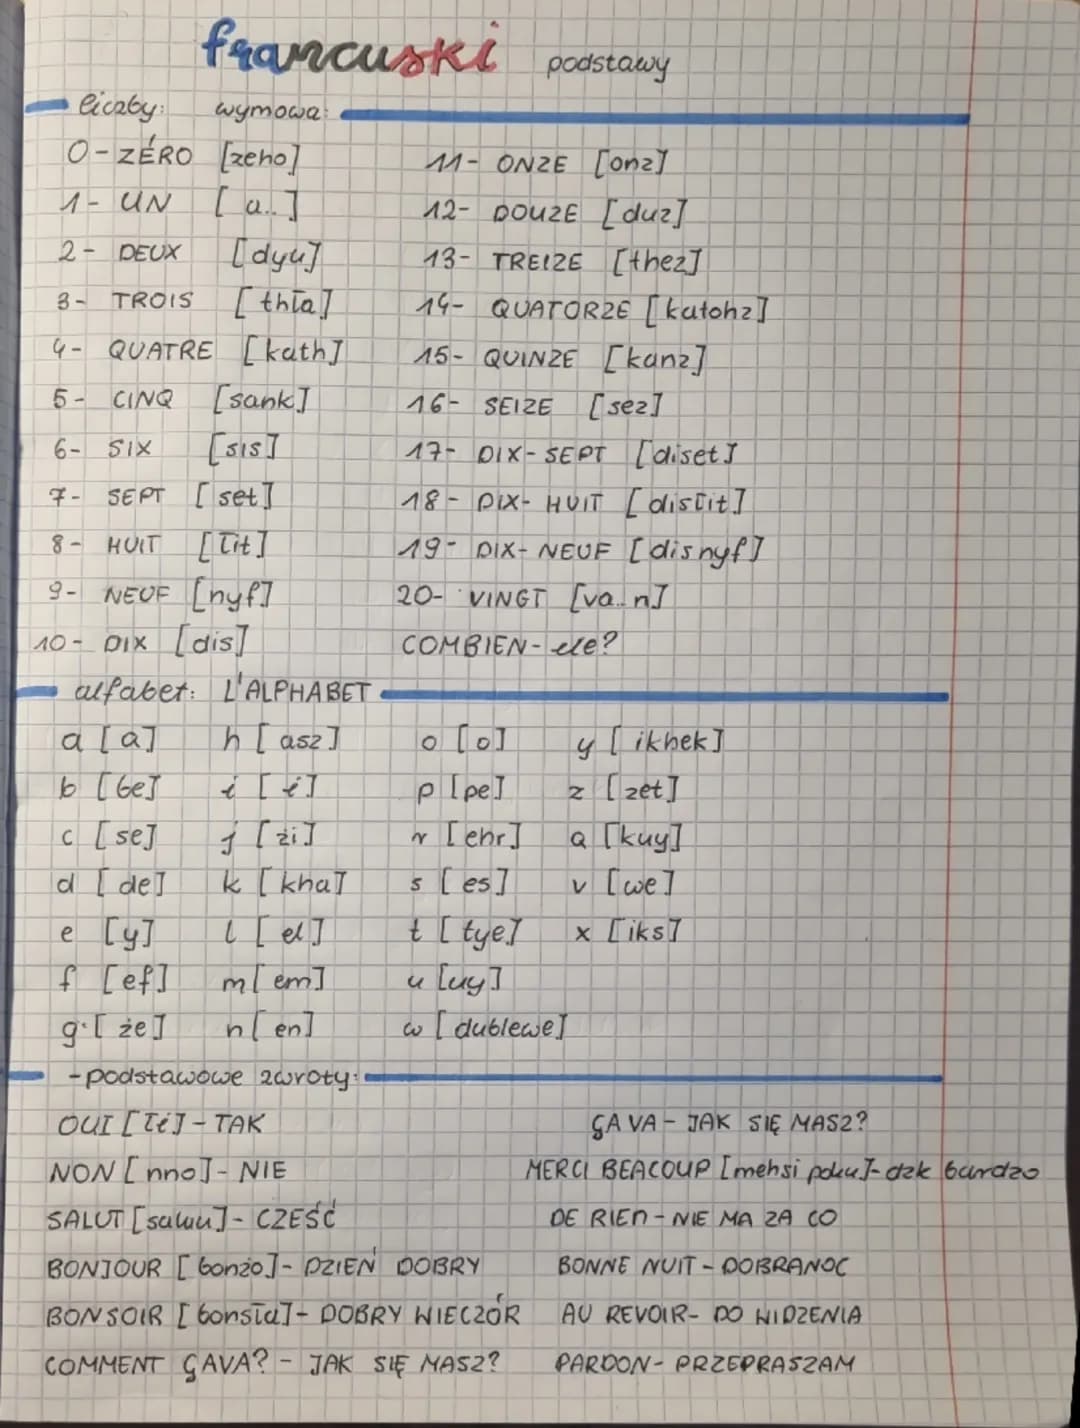 francuski podstawy
liczby: wymowa:
0 - ZÉRO [zeho]
1 - UN [a..]
2 - DEUX [dyu]
3 - TROIS [thła]
4 - QUATRE [kath]
5 - CINQ [sank]
6 - SIX [sis]
7 - SEPT [set]
8 - HUIT [łit]
9 - NEUF [nyf]
10 - DIX [dis]
11 - ONZE [onz]
12 - DOUZE [duz]
13 - TREIZE [thez]
14 - QUATORZE [katohz]
15 - QUINZE [kanz]
16 - SEIZE [sez]
17 - DIX-SEPT [diset]
18 - DIX-HUIT [disłit]
19 - DIX-NEUF [disnyf]
20 - VINGT [va..n]
COMBIEN - ile?
alfabet: L'ALPHABET
a [a]
b [be]
c [se]
d [de]
e [y]
f [ef]
g [że]
h [asz]
i [i]
j [żi]
k [kha]
l [el]
m [em]
n [en]
o [o]
p [pe]
r [ehr]
s [es]
t [tye]
u [uy]
w [dublewe]
y [ikhek]
z [zet]
Q [kuy]
v [we]
x [iks]
- podstawowe zwroty:
OUI [łi] - TAK
NON [nno] - NIE
SALUT [saluu] - CZEŚĆ
BONJOUR [bonżo] - DZIEŃ DOBRY
BONSOIR [bonsła] - DOBRY WIECZÓR
COMMENT ÇAVA? - JAK SIĘ MASZ?
ÇA VA - JAK SIĘ MASZ?
MERCI BEACOUP [mehsi poku] - dzk bardzo
DE RIEn - NIE MA ZA CO
BONNE NUIT - DOBRANOC
AU REVOIR - DO WIDZENIA
PARDON - PRZEPRASZAM